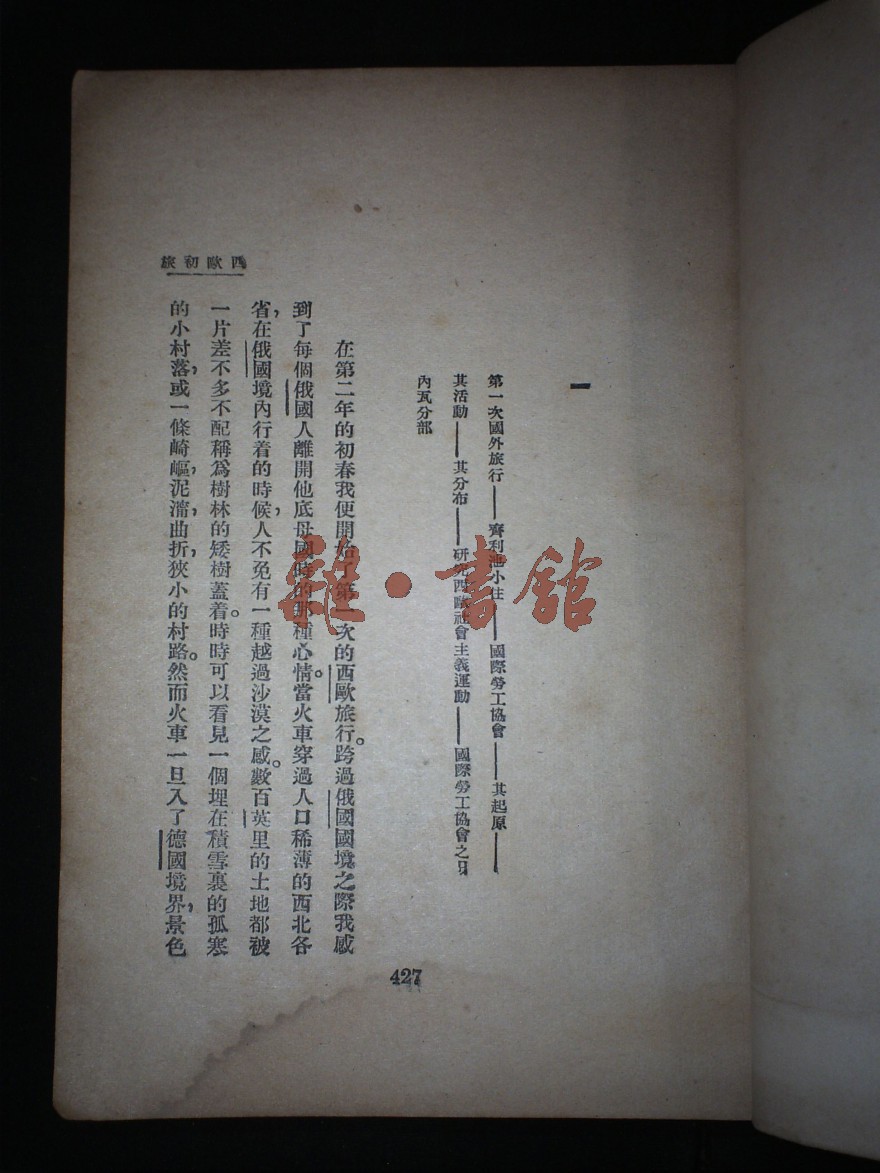 一
第一次國外旅行——齊利池小住——國際勞工協會——其起原——
其活動——其分布——研究西歐社會主義運動——國際勞工協會之日
內瓦分部
在第二年的初春我便開始了第一次的西歐旅行。跨過俄國國境之際我感
到了每個俄國人離開他底母國時的那種心情。當火車穿過人口稀薄的西北各
省，在俄國境內行着的時候，人不免有一種越過沙漠之感。數百英里的土地都被
一片差不多不配稱爲樹林的矮樹蓋着。時時可以看見一個埋在積雪裏的孤寒
的小村落，或一條崎嶇，泥濘，曲折，狹小的村路。然而火車一旦入了德國境界，景色
西歐初旅
427
雜·書館